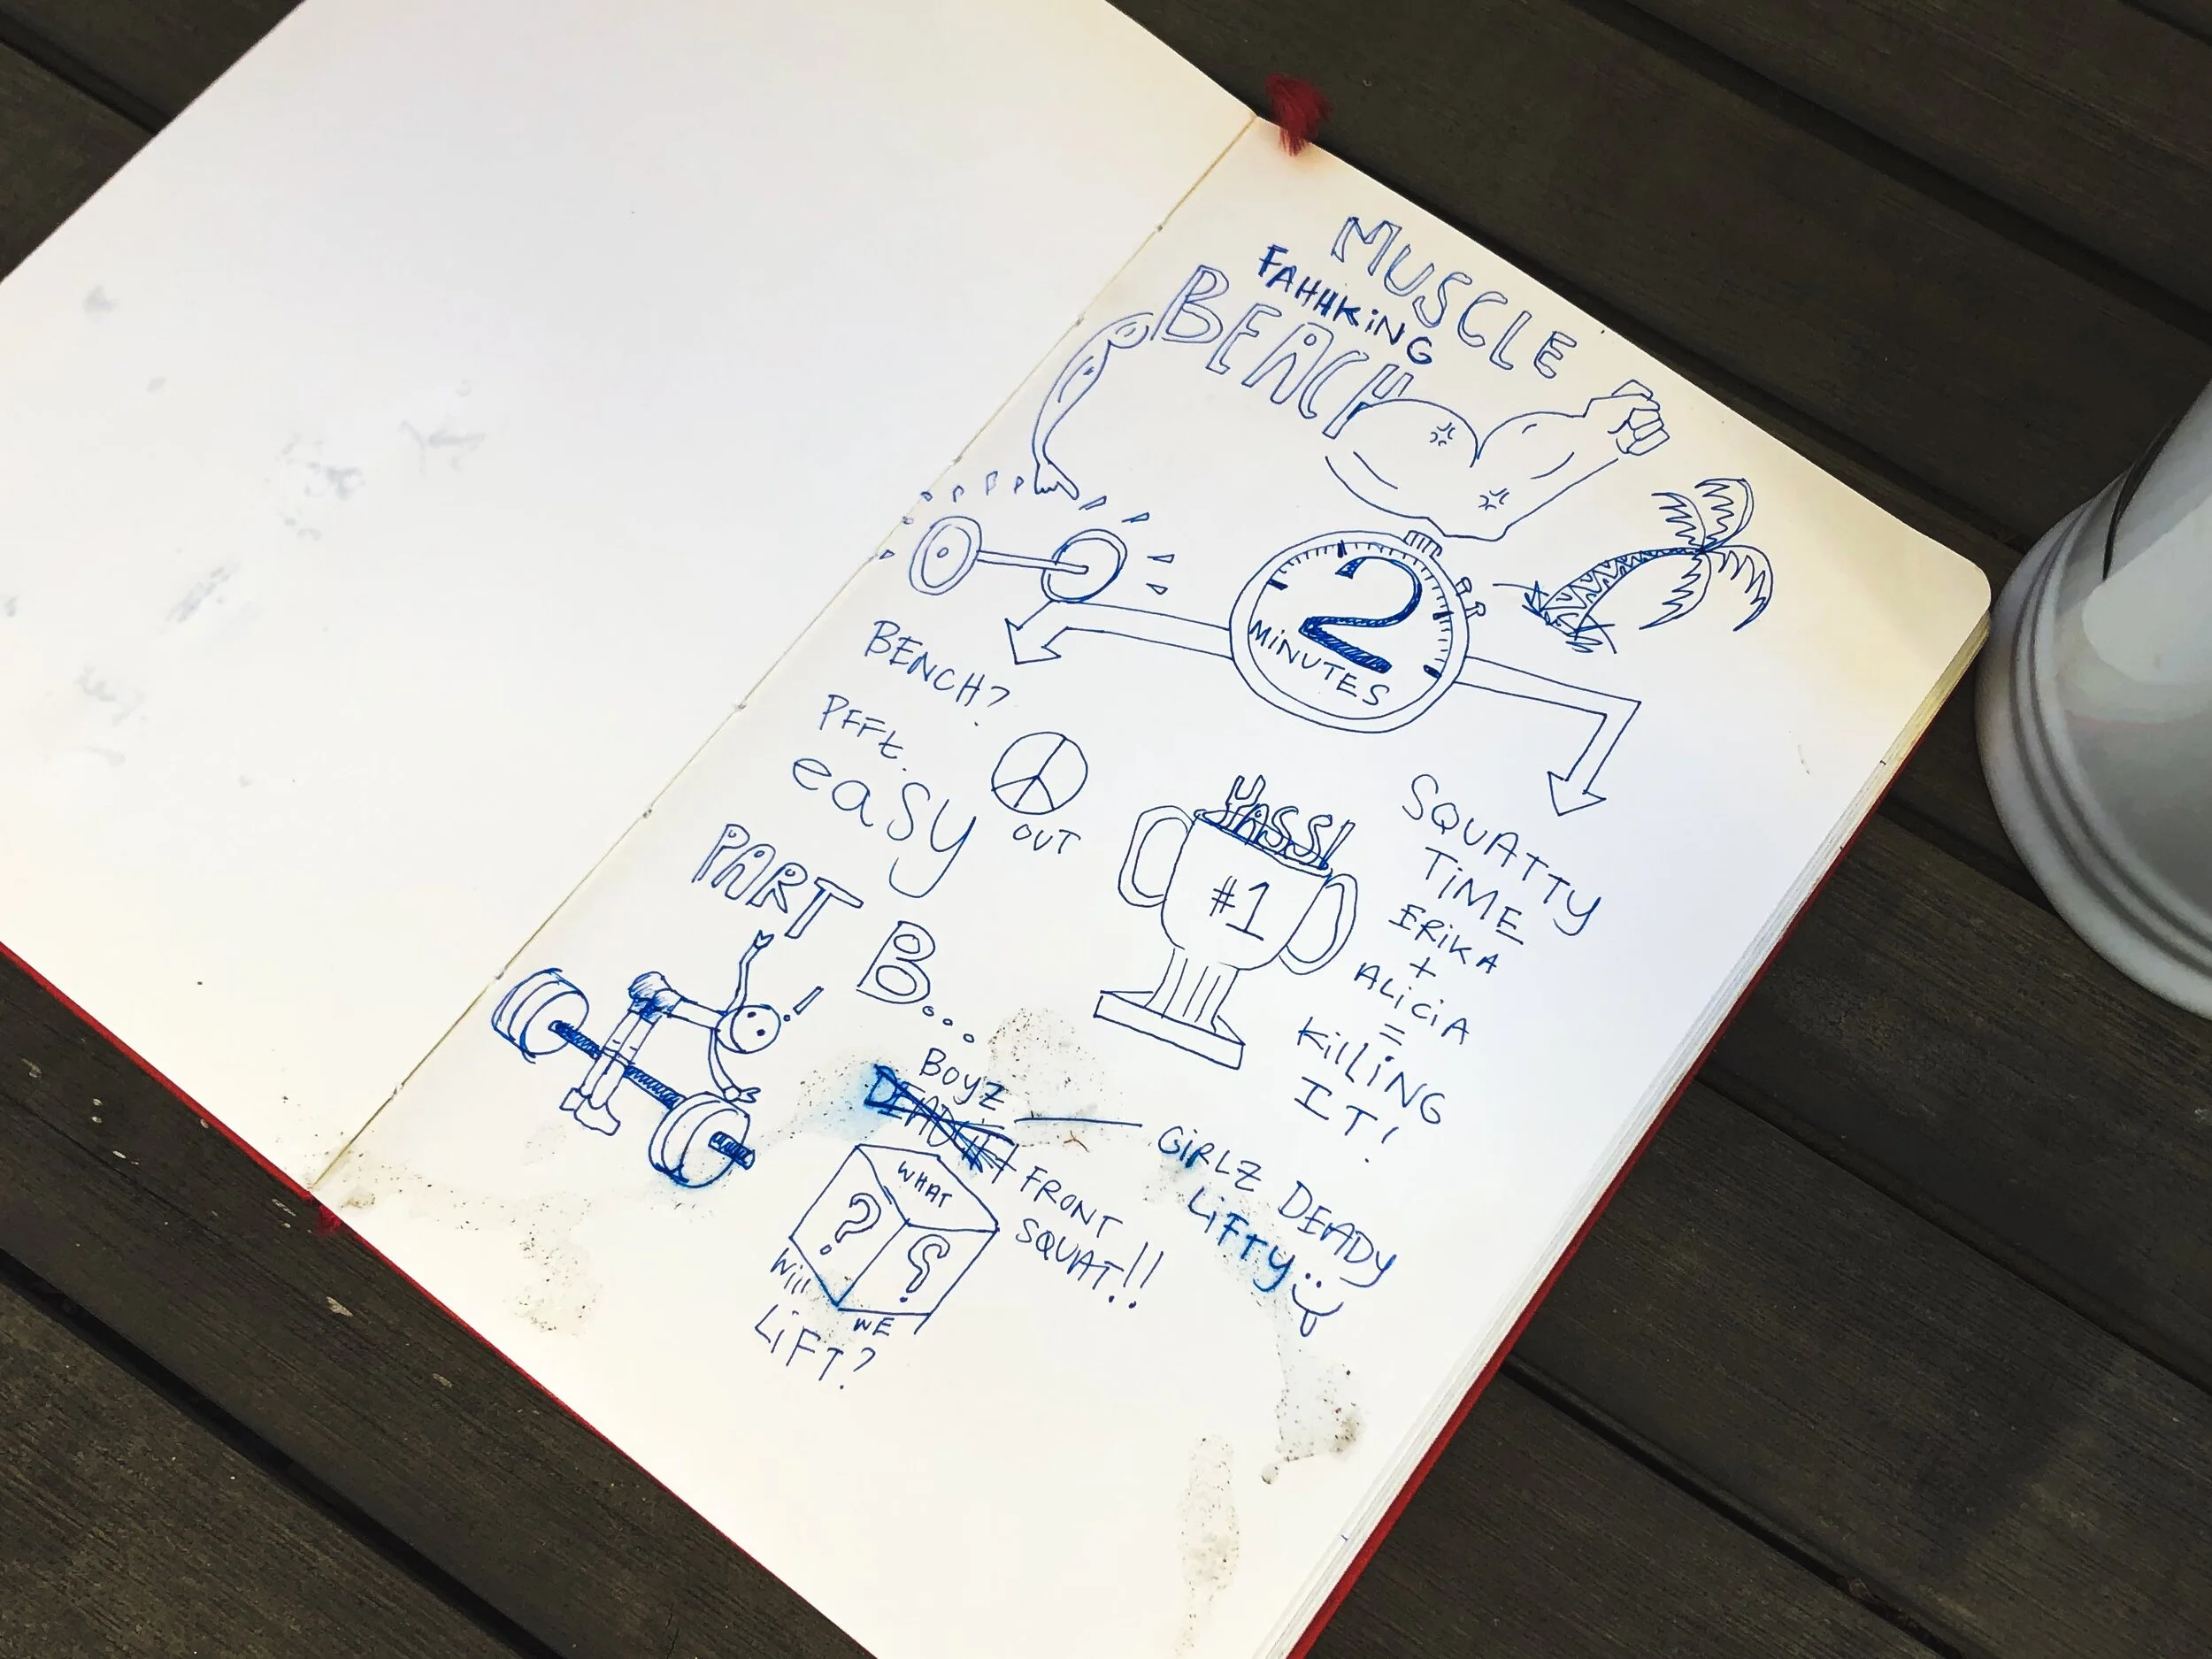 MUSCLE
FAHHKiNG
BEACH
2
MiNUTES
BENCH?
PFFt.
easy
OUT
YASS!
#1
SQUATTY
TiME
ERiKA
+
ALiCiA
=
KillING
IT!
PART
B...
BOYZ
FRONT
SQUAT!!
GiRLZ DEADY
LiFTY
WHAT
?
?
Will
WE
LiFT?